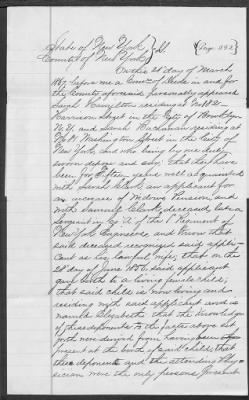 State of New York } SS (Dup 182)
County of New York
On this 21 day of March
1867 before me a Comr of Deeds in and for
the County aforesaid personally appeared
Sarah Hamilton residing at No 182
Harrison Street in the City of Brooklyn
N.Y. and Sarah Buchanan residing at
Washington Street in the City of
New York, and who being by me duly
sworn depose and say that they have
been for fifteen years well acquainted
with Sarah Clark an applicant for
an increase of Widows Pension, and
with Samuel Clark, deceased, late a
Sergeant in Co of the 1st Regiment of
New York Engineers, and know that
said deceased recognized said appli-
cant as his lawful wife, that on the
28 day of June 1856, said applicant
gave birth to a living female child,
that said child is now living and
residing with said applicant and is
named Elizabeth that the knowledge
of these deponents to the facts above set
forth were derived from having been
present at the birth of said child, that
these deponents and the attending Phy-
sician were the only persons present